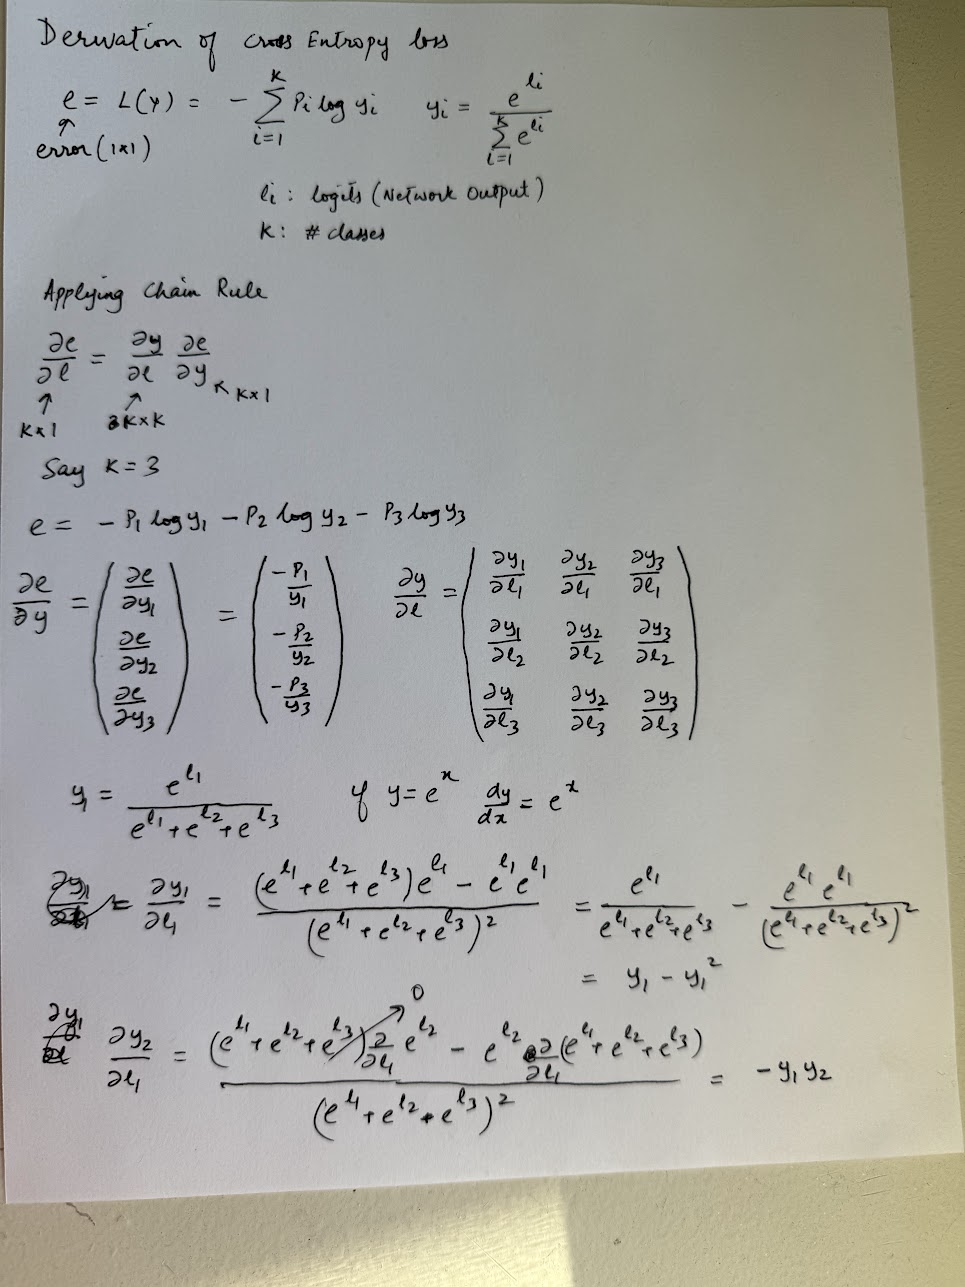 Derivation of cross Entropy loss
e = L(y) = - ∑_{i=1}^{k} Pi log yi    yi = e^{li} / ∑_{i=1}^{k} e^{li}
↑
error (1x1)
li : logits (Network Output)
K: # classes
Applying Chain Rule
∂e/∂l = ∂y/∂l ∂e/∂y ↖ K×1
↑ ↑
K×1 K×K
Say K = 3
e = - P1 log y1 - P2 log y2 - P3 log y3
∂e/∂y = ( ∂e/∂y1 ; ∂e/∂y2 ; ∂e/∂y3 ) = ( -P1/y1 ; -P2/y2 ; -P3/y3 )    ∂y/∂l = ( ∂y1/∂l1 ∂y2/∂l1 ∂y3/∂l1 ; ∂y1/∂l2 ∂y2/∂l2 ∂y3/∂l2 ; ∂y1/∂l3 ∂y2/∂l3 ∂y3/∂l3 )
y1 = e^{l1} / (e^{l1} + e^{l2} + e^{l3})    if y = e^x dy/dx = e^x
= ∂y1/∂l1 = ((e^{l1} + e^{l2} + e^{l3}) e^{l1} - e^{l1} e^{l1}) / (e^{l1} + e^{l2} + e^{l3})^2 = e^{l1} / (e^{l1} + e^{l2} + e^{l3}) - e^{l1} e^{l1} / (e^{l1} + e^{l2} + e^{l3})^2
= y1 - y1^2
0
∂y2/∂l1 = ((e^{l1} + e^{l2} + e^{l3}) ∂/∂l1 e^{l2} - e^{l2} ∂/∂l1 (e^{l1} + e^{l2} + e^{l3})) / (e^{l1} + e^{l2} + e^{l3})^2 = - y1 y2